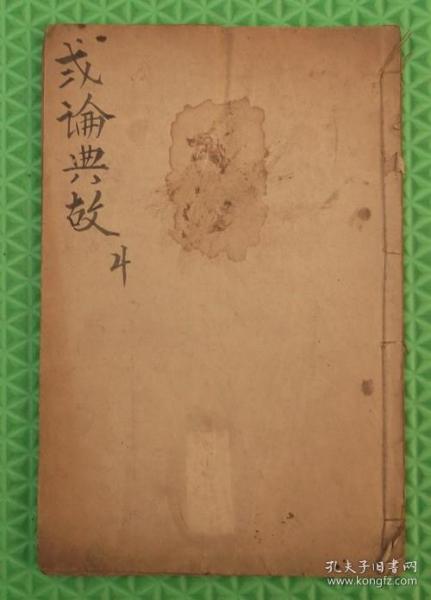 弍論典故
孔夫子旧书网
www.kongfz.com